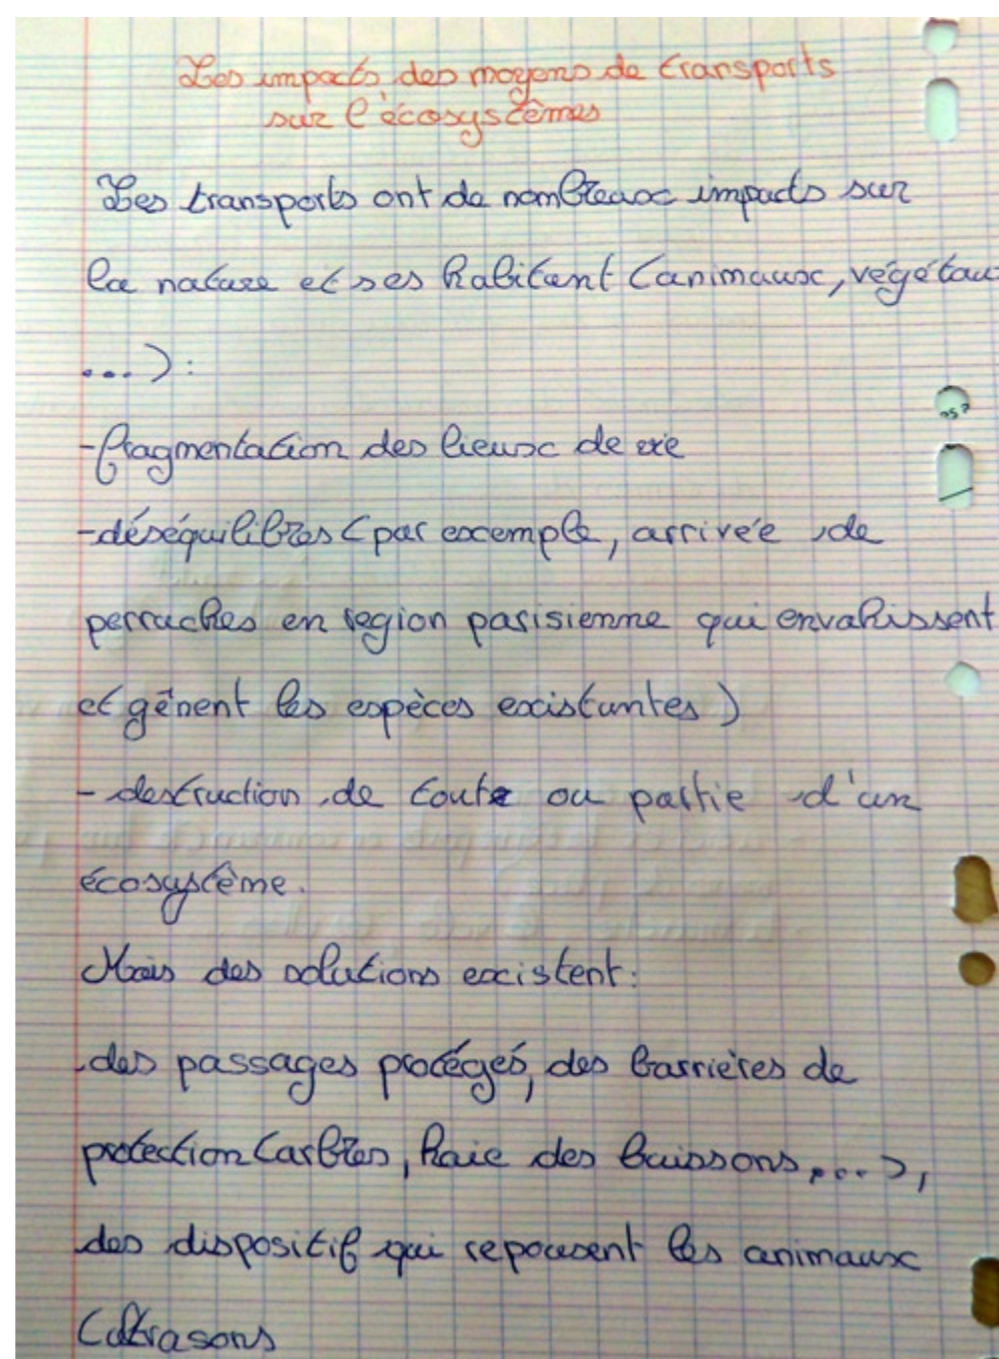 Les impacts des moyens de transports
sur l'écosystèmes
Les transports ont de nombreaux impacts sur
la nature et ses habitant (animaux, végétau
...):
-fragmentation des lieux de vie
-déséquilibres (par exemple, arrivée de
perruches en region parisienne qui envahissent
et gênent les espèces existantes)
- destruction de toute ou partie d'un
écosystème.
Mais des solutions existent:
des passages protégés, des barrières de
protection (arbres, haie des buissons,...),
des dispositif qui repoussent les animaux
(ultrasons